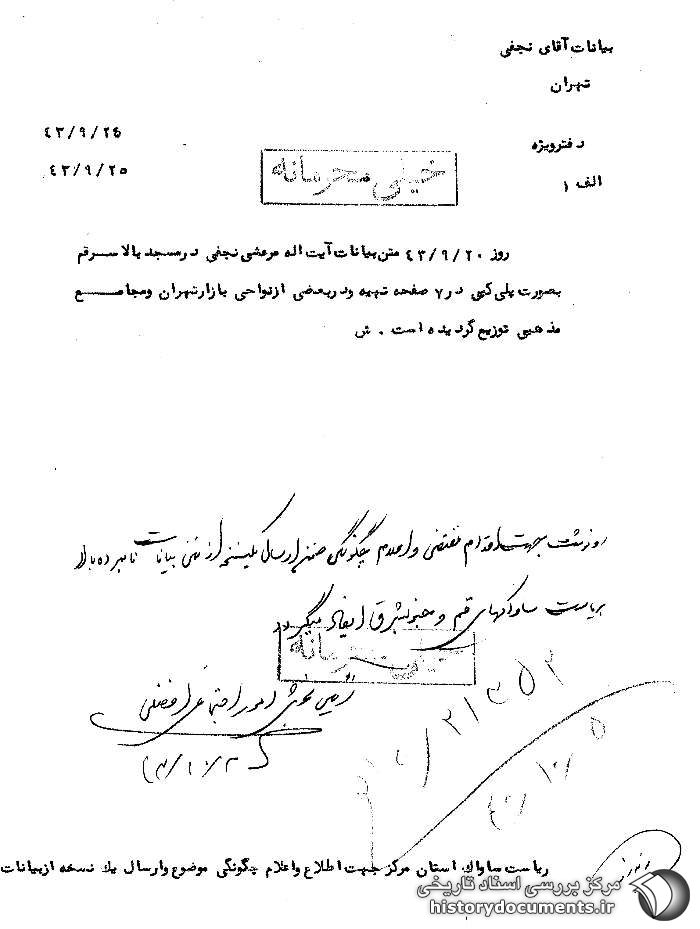 بیانات آقای نجفی
تهران
دفتر ویژه
٤٣/٩/٢٤
الف ١
٤٣/٩/٢٥
خیلی محرمانه
روز ٤٣/٩/٢٠ متن بیانات آیت اله مرعشی نجفی در مسجد بالاسر قم
بصورت پلی کپی در ۷ صفحه تهیه ودر بعضی از نواحی بازار تهران ومجامع
مذهبی توزیع گردیده است . ش
رونوشت بجهت اقدام مقتضی و اعلام چگونگی ضمن ارسال یک نسخه از متن بیانات نامبرده بالا
بریاست ساواکهای قم و جنوبشرق ایفاد میگردد
خیلی محرمانه
رئیس بخش امور اجتماعی افضلی
ریاست ساواك استان مرکز جهت اطلاع واعلام چگونگی موضوع وارسال یك نسخه از بیانات
مرکز بررسی اسناد تاریخی
historydocuments.ir